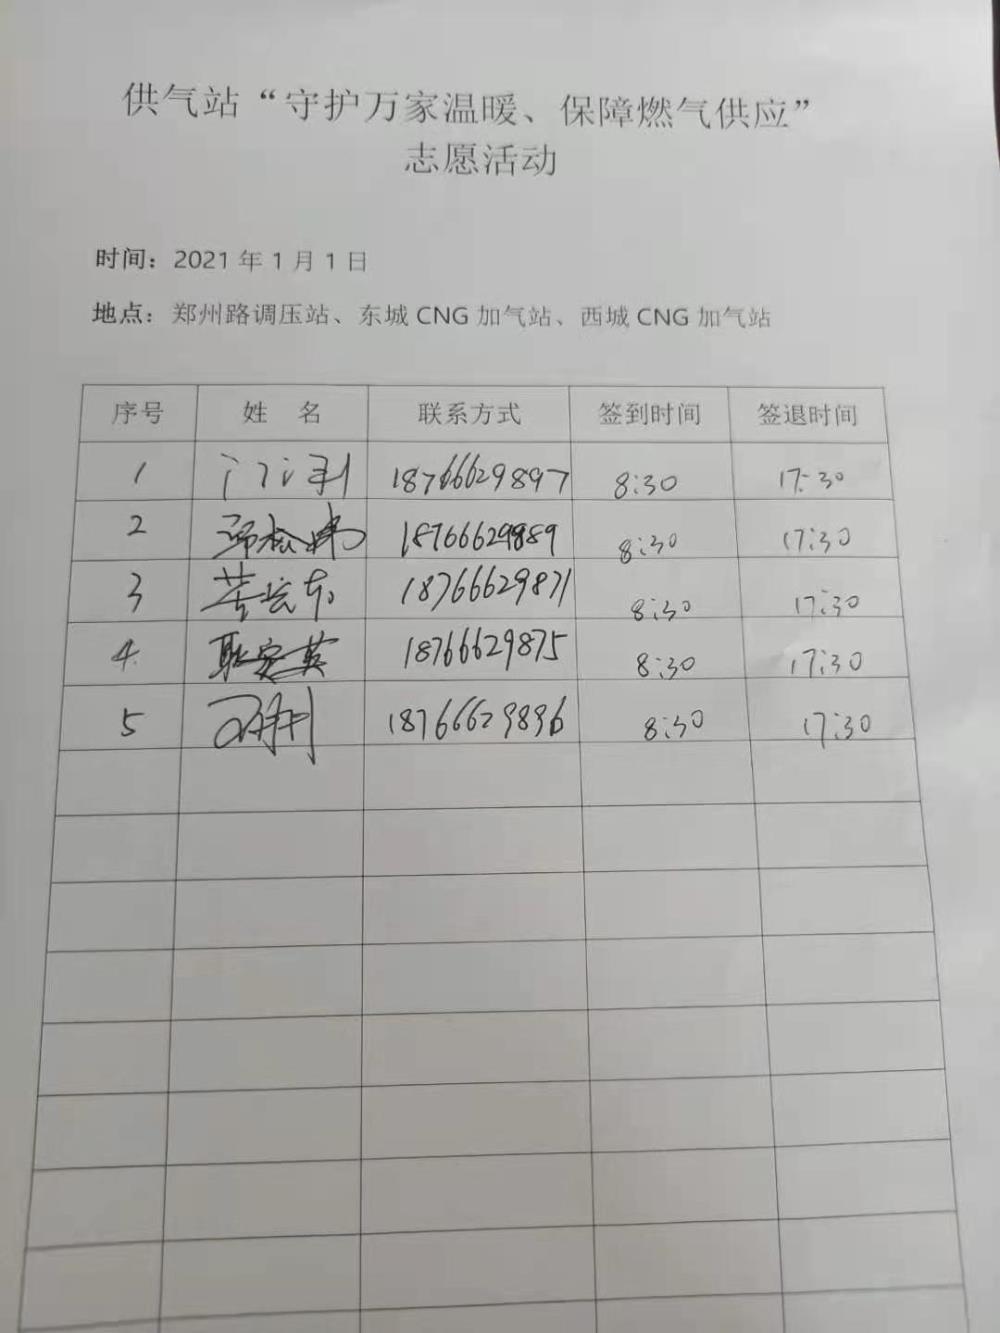 供气站“守护万家温暖、保障燃气供应”
志愿活动
时间：2021年1月1日
地点：郑州路调压站、东城CNG加气站、西城CNG加气站
序号 姓 名 联系方式 签到时间 签退时间
1 18766629897 8:30 17:30
2 18766629889 8:30 17:30
3 18766629871 8:30 17:30
4 耿安英 18766629875 8:30 17:30
5 18766629896 8:30 17:30